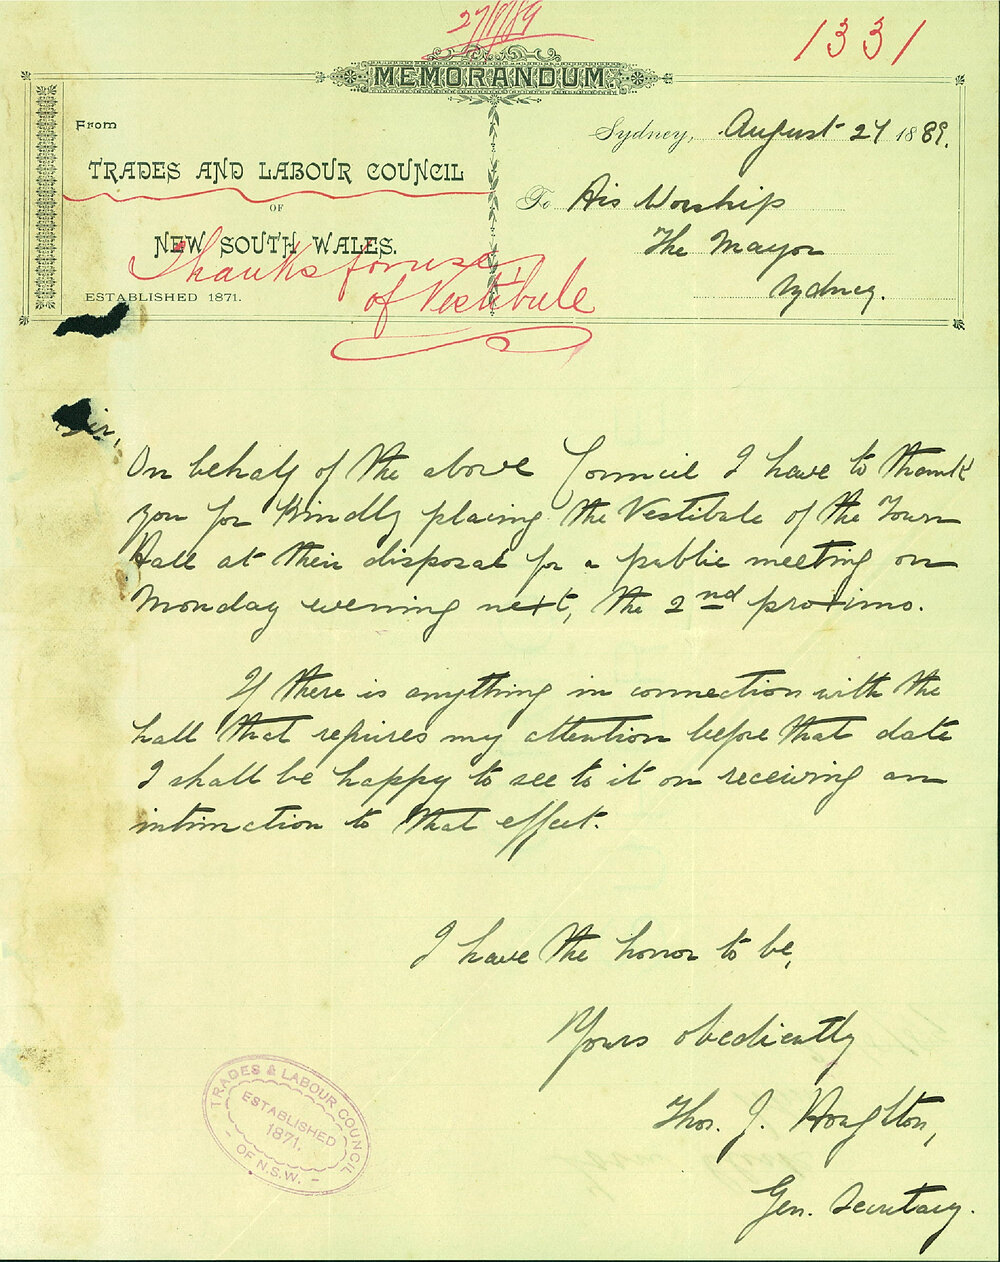 27/8/89
1331
MEMORANDUM.
From
TRADES AND LABOUR COUNCIL
OF
NEW SOUTH WALES.
ESTABLISHED 1871.
Thanks for use
of Vestibule
Sydney, August 27 1889.
To His Worship
The Mayor
Sydney.
Sir,
On behalf of the above Council I have to thank
you for kindly placing the Vestibule of the Town
Hall at their disposal for a public meeting on
Monday evening next, the 2nd proximo.
If there is anything in connection with the
hall that requires my attention before that date
I shall be happy to see to it on receiving an
intimation to that effect.
I have the honor to be,
Yours obediently
Thos. J. Houghton,
Gen. Secretary.
TRADES & LABOUR COUNCIL
ESTABLISHED
1871.
- OF N.S.W. -